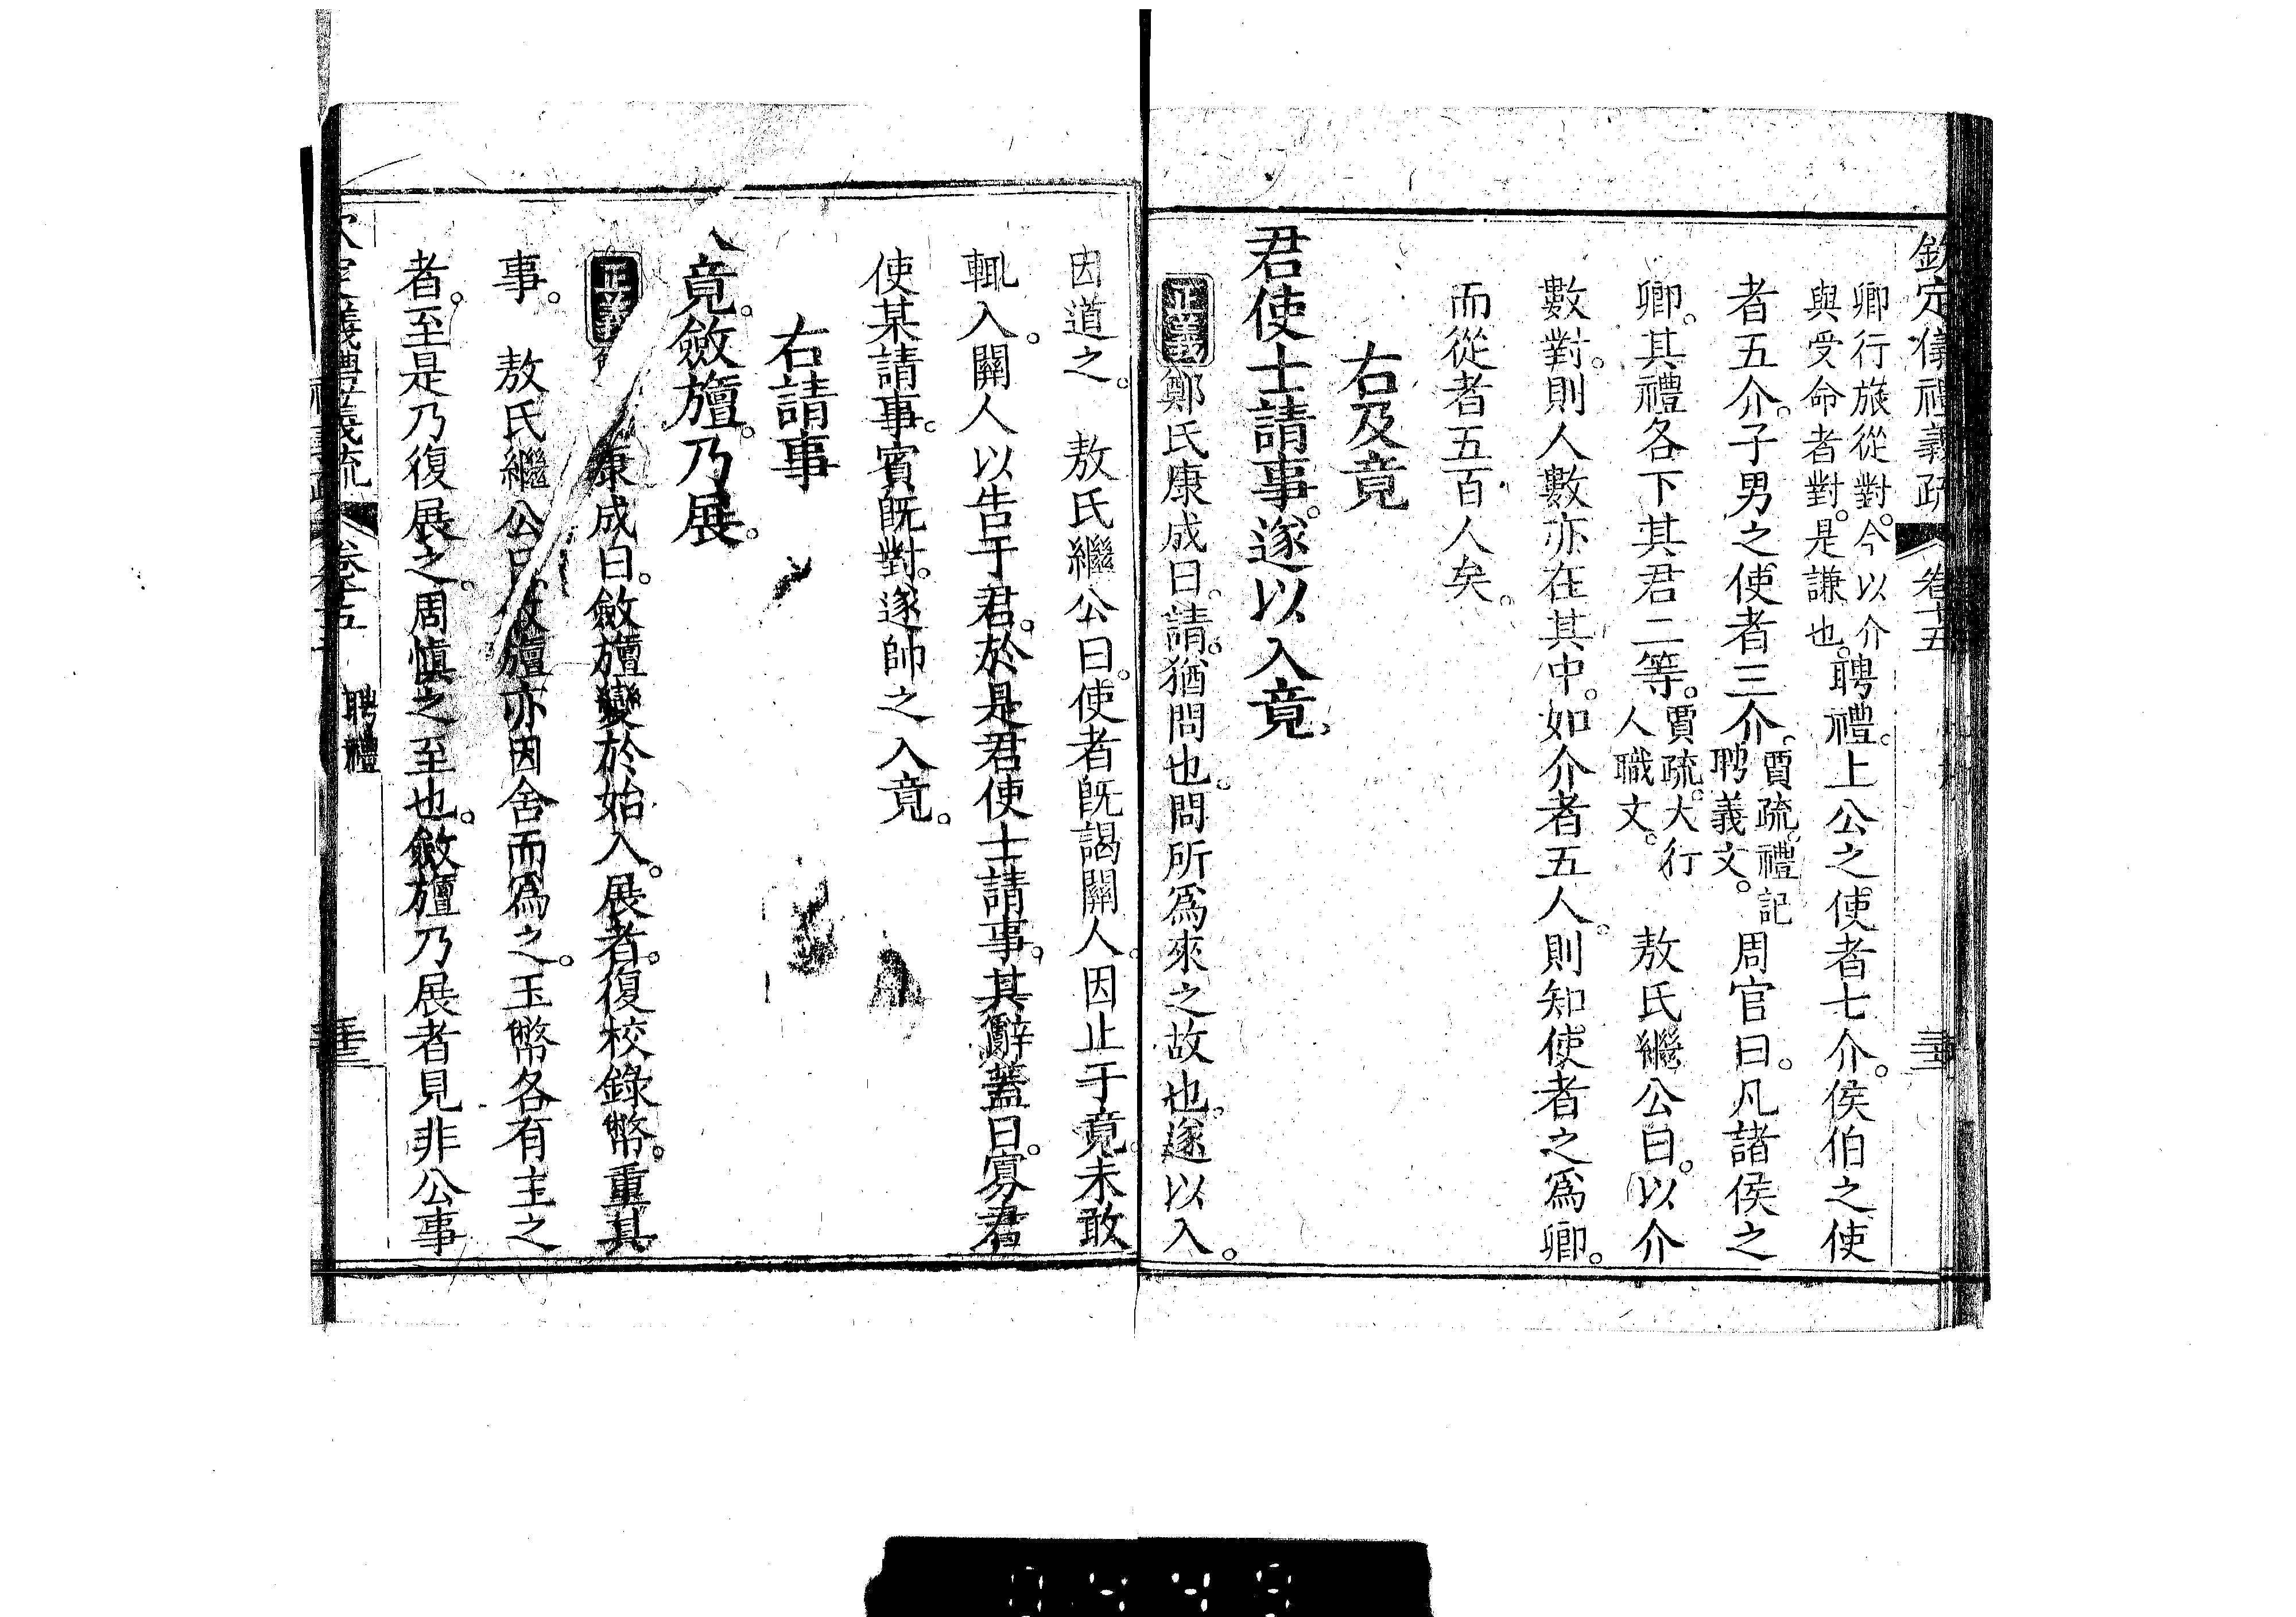 欽定儀禮義疏 卷十五
卿行旅從對。今以介
與受命者對。是謙也。
聘禮。上公之使者七介。侯伯之使
者五介。子男之使者三介。
賈疏。禮記
聘義文。
周官曰。凡諸侯之
卿。其禮各下其君二等。
賈疏。大行
人職文。
敖氏繼公曰。以介
數對。則人數亦在其中。如介者五人。則知使者之爲卿。
而從者五百人矣。
右及竟
君使士請事。遂以入竟。
正義鄭氏康成曰。請。猶問也。問所爲來之故也。遂以入。
因道之。 敖氏繼公曰。使者旣謁關人。因止于竟。未敢
輒入。關人以告于君。於是君使士請事。其辭蓋曰。寡君
使某請事。賓旣對。遂帥之入竟。
右請事
入竟。斂旜。乃展。
正義 康成曰。斂旜變於始入。展者。復校錄幣。重其
事。 敖氏繼公曰。斂旜亦因舍而爲之。玉幣各有主之
者。至是乃復展之。周愼之至也。斂旜乃展者見非公事
聘禮